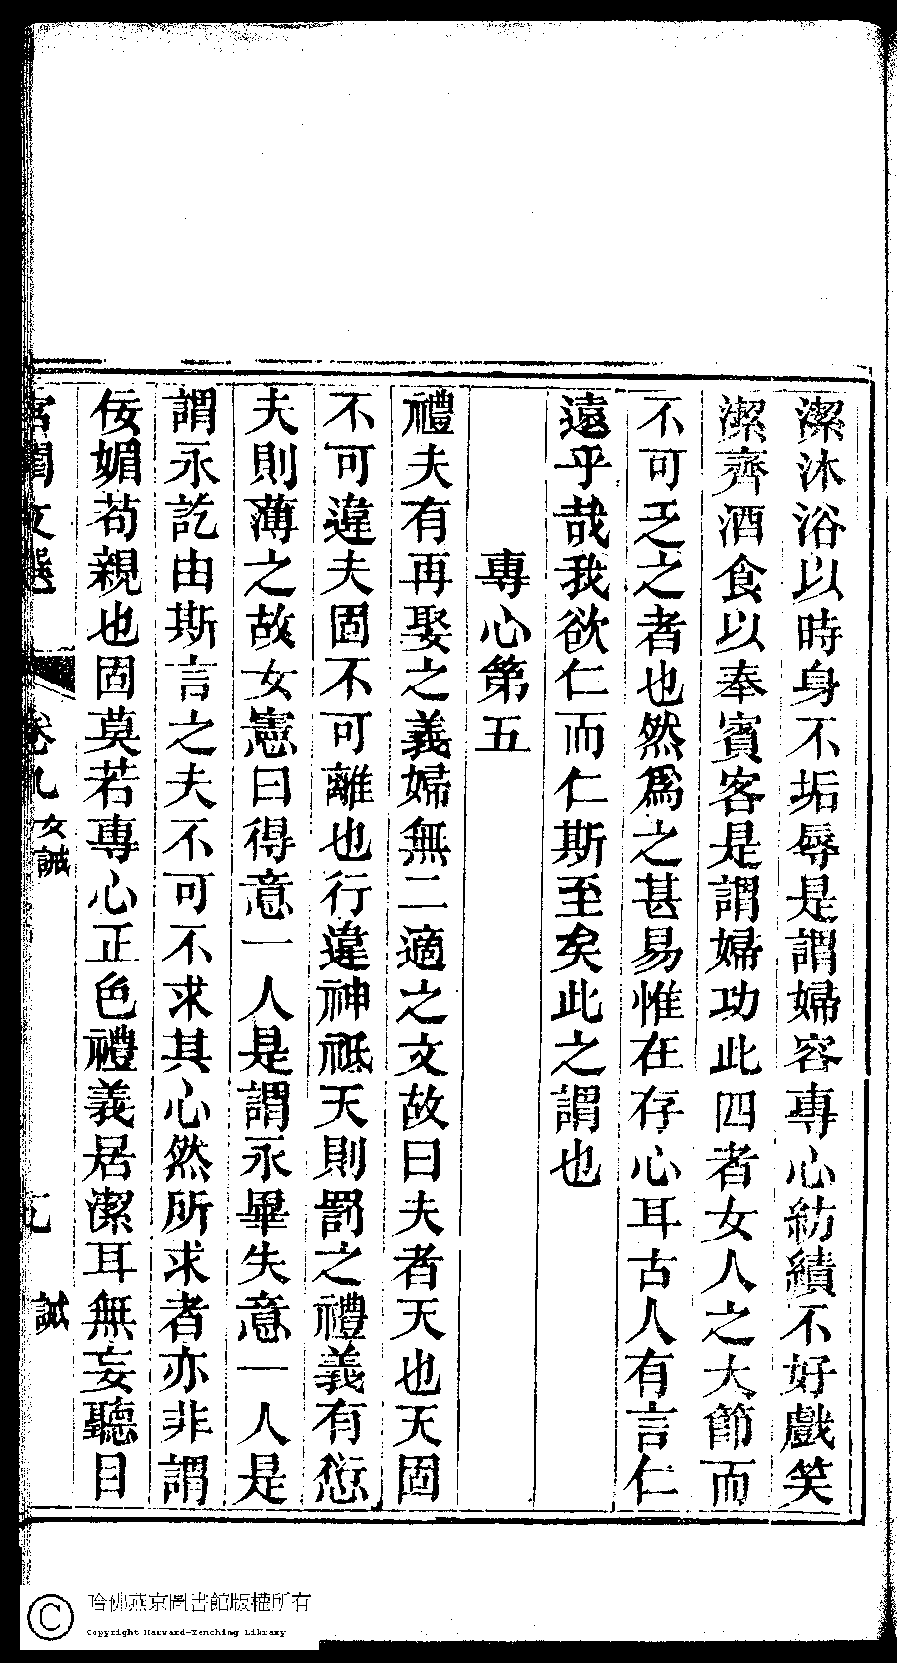 潔沐浴以時身不垢辱是謂婦容專心紡績不好戲笑
潔齊酒食以奉賓客是謂婦功此四者女人之大節而
不可乏之者也然爲之甚易惟在存心耳古人有言仁
遠乎哉我欲仁而仁斯至矣此之謂也
專心第五
禮夫有再娶之義婦無二適之文故曰夫者天也天固
不可違夫固不可離也行違神祗天則罰之禮義有愆
夫則薄之故女憲曰得意一人是謂永畢失意一人是
謂永訖由斯言之夫不可不求其心然所求者亦非謂
佞媚苟親也固莫若專心正色禮義居潔耳無妄聽目
宮閨文選 卷九 女誡 誡
哈佛燕京圖書館版權所有
Copyright Harvard-Yenching Library